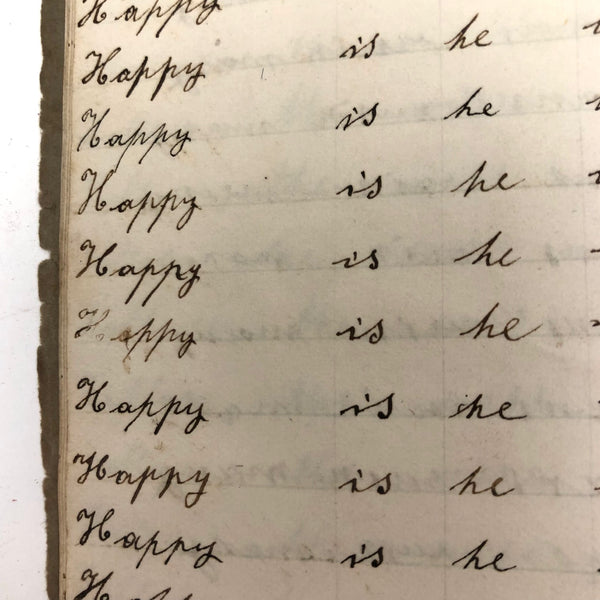 Happy
Happy is he
Happy is he
Happy is he
Happy is he
Happy is he
Happy is he
Happy is he
Happy is he